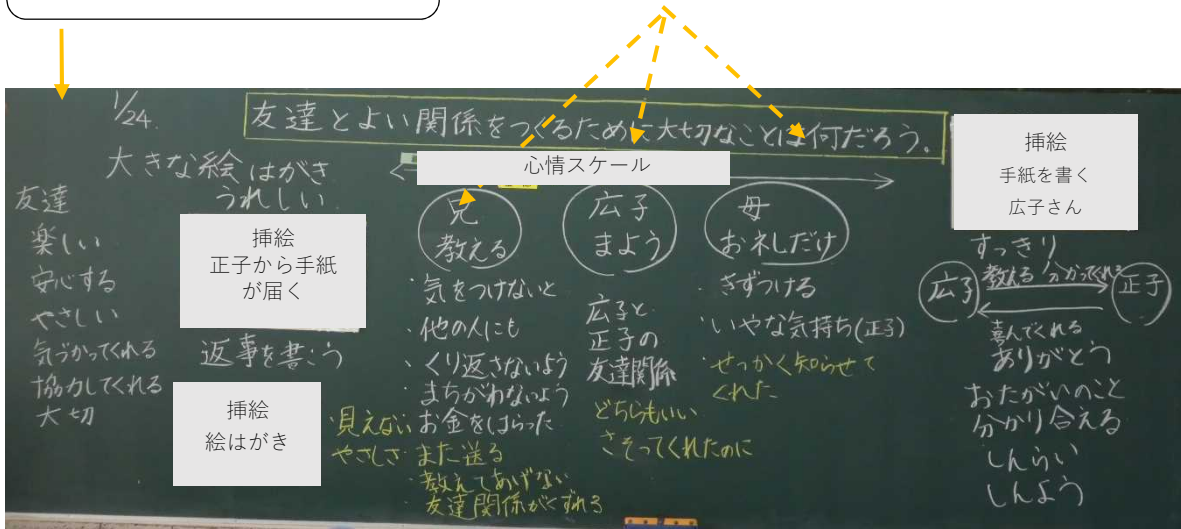 1/24.
友達とよい関係をつくるために大切なことは何だろう。
大きな絵はがき
心情スケール
友達
楽しい
安心する
やさしい
気づかってくれる
協力してくれる
大切
うれしい
挿絵
正子から手紙
が届く
返事を書こう
挿絵
絵はがき
兄
教える
・気をつけないと
・他の人にも
・くり返さないよう
・まちがわないよう
お金をはらった
・見えない
やさしさ
・また送る
・教えてあげない
・友達関係がくずれる
広子
まよう
広子と
正子の
友達関係
どちらもいい
さそってくれたのに
母
お礼だけ
・きずつける
・いやな気持ち(正子)
・せっかく知らせて
くれた
挿絵
手紙を書く
広子さん
すっきり
広子
教える 分かってくれる
正子
喜んでくれる
ありがとう
おたがいのこと
分かり合える
しんらい
しんよう